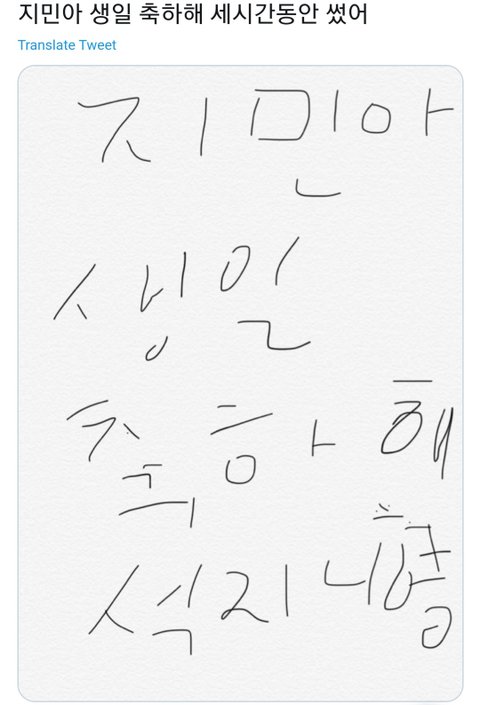 지민아 생일 축하해 세시간동안 썼어
Translate Tweet
지민아
생일
축하해